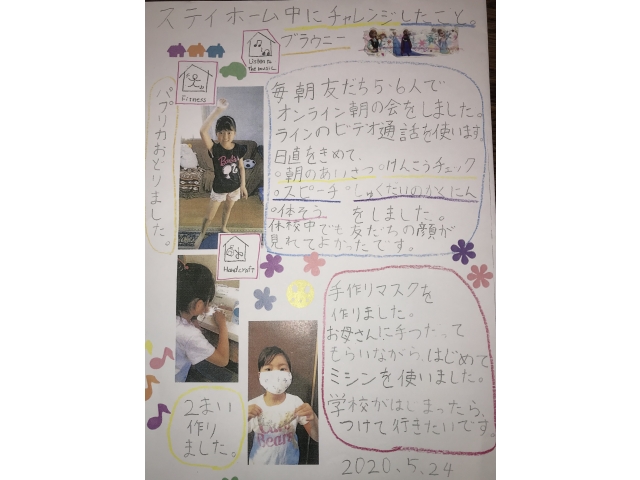 ステイホーム中にチャレンジしたこと。
ブラウニー
Listen to
The music
Fitness
パプリカおどりました。
毎朝友だち5・6人で
オンライン朝の会をしました。
ラインのビデオ通話を使います。
日直をきめて、
○朝のあいさつ○けんこうチェック
○スピーチ○しゅくだいのかくにん
○体そう をしました。
休校中でも友だちの顔が
見れてよかったです。
Handcraft
手作りマスクを
作りました。
お母さんに手つだって
もらいながら、はじめて
ミシンを使いました。
学校がはじまったら、
つけて行きたいです。
2まい
作り
ました。
2020.5.24